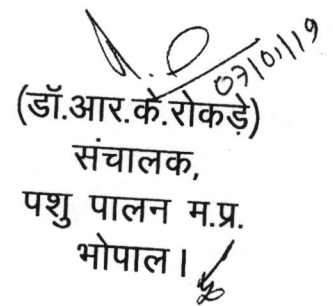 07/01/19
(डॉ.आर.के.रोकड़े)
संचालक,
पशु पालन म.प्र.
भोपाल।